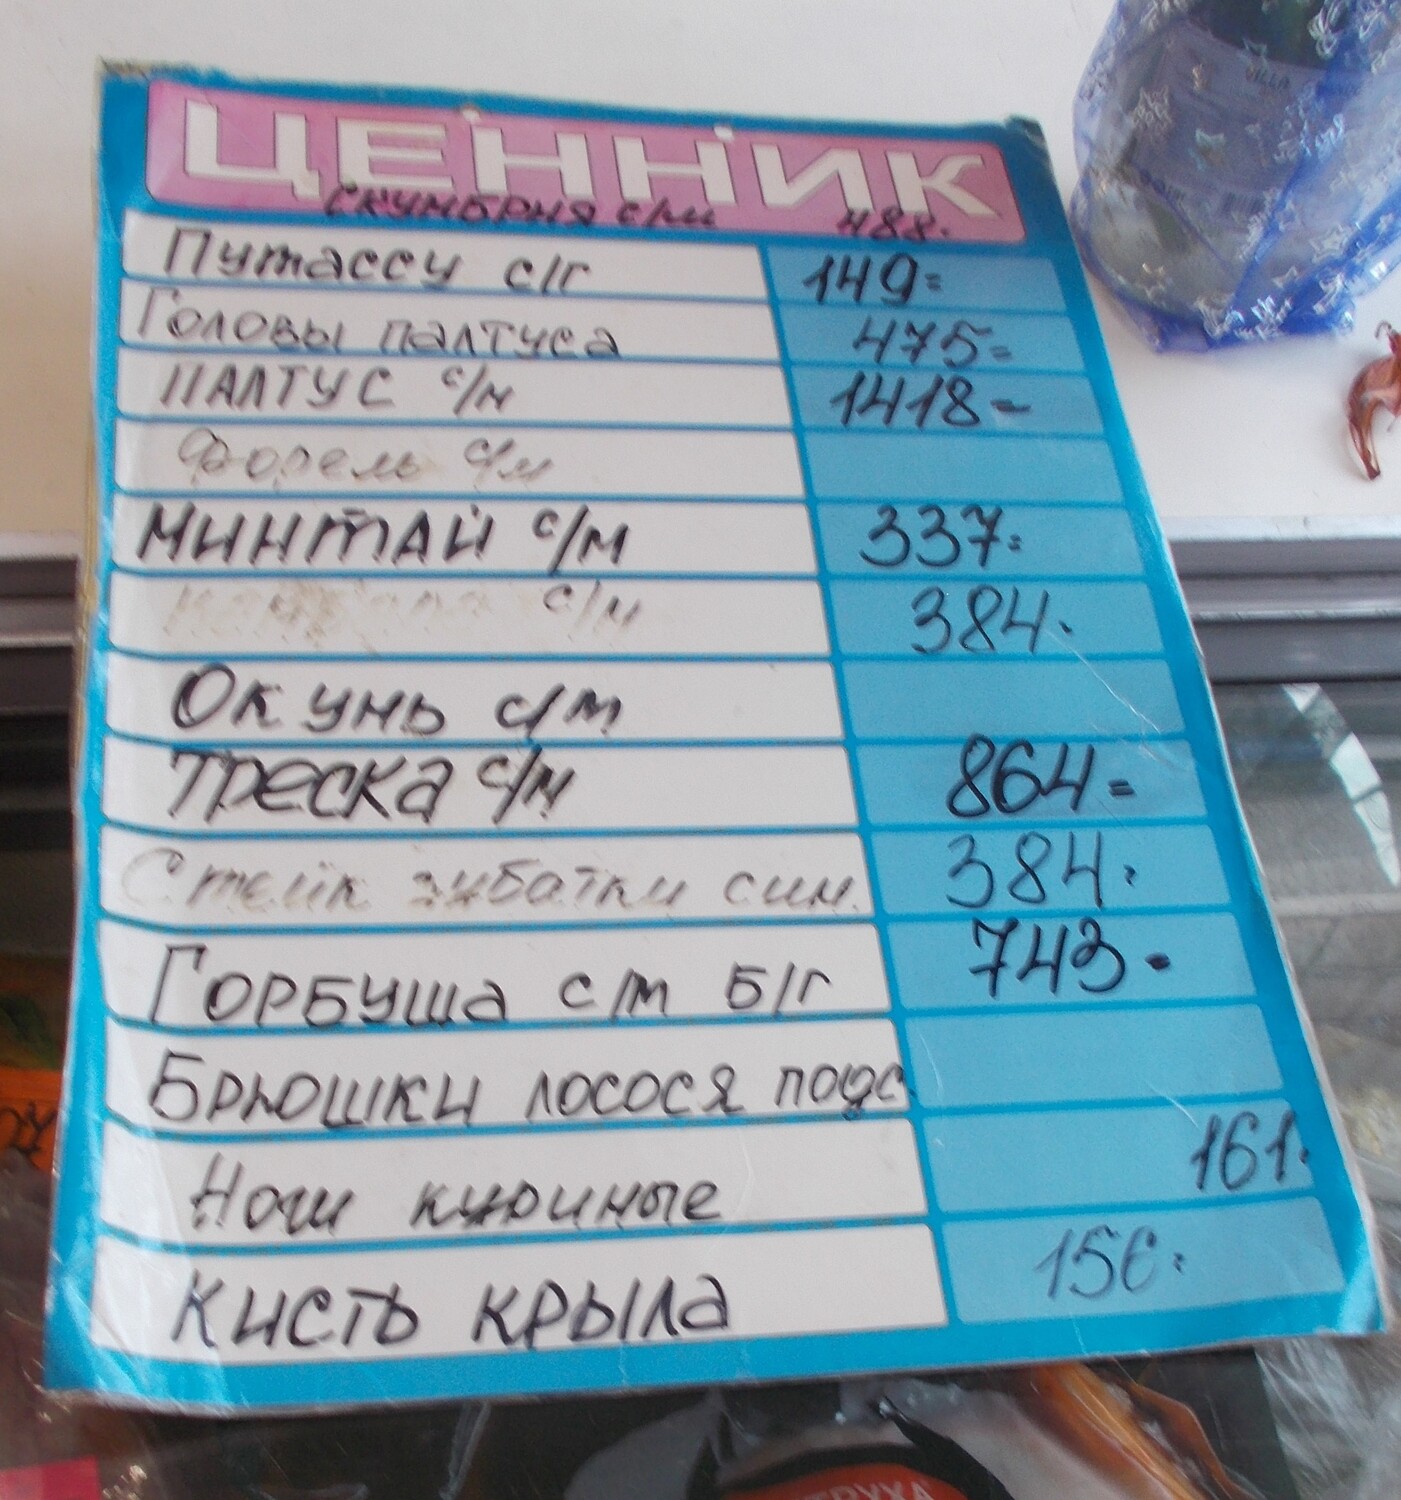 ЦЕННИК
СКУМБРИЯ с/м 488.
Путассу с/г 149=
Головы палтуса 475=
ПАЛТУС с/м 1418=
Форель с/м
МИНТАЙ с/м 337=
с/м 384.
Окунь с/м
Треска с/м 864=
Стейк зубатки син. 384.
Горбуша с/м б/г 743.
Брюшки лосося подс
161.
Ноги куриные
Кисть крыла 156.
ТРУХА
VILLA